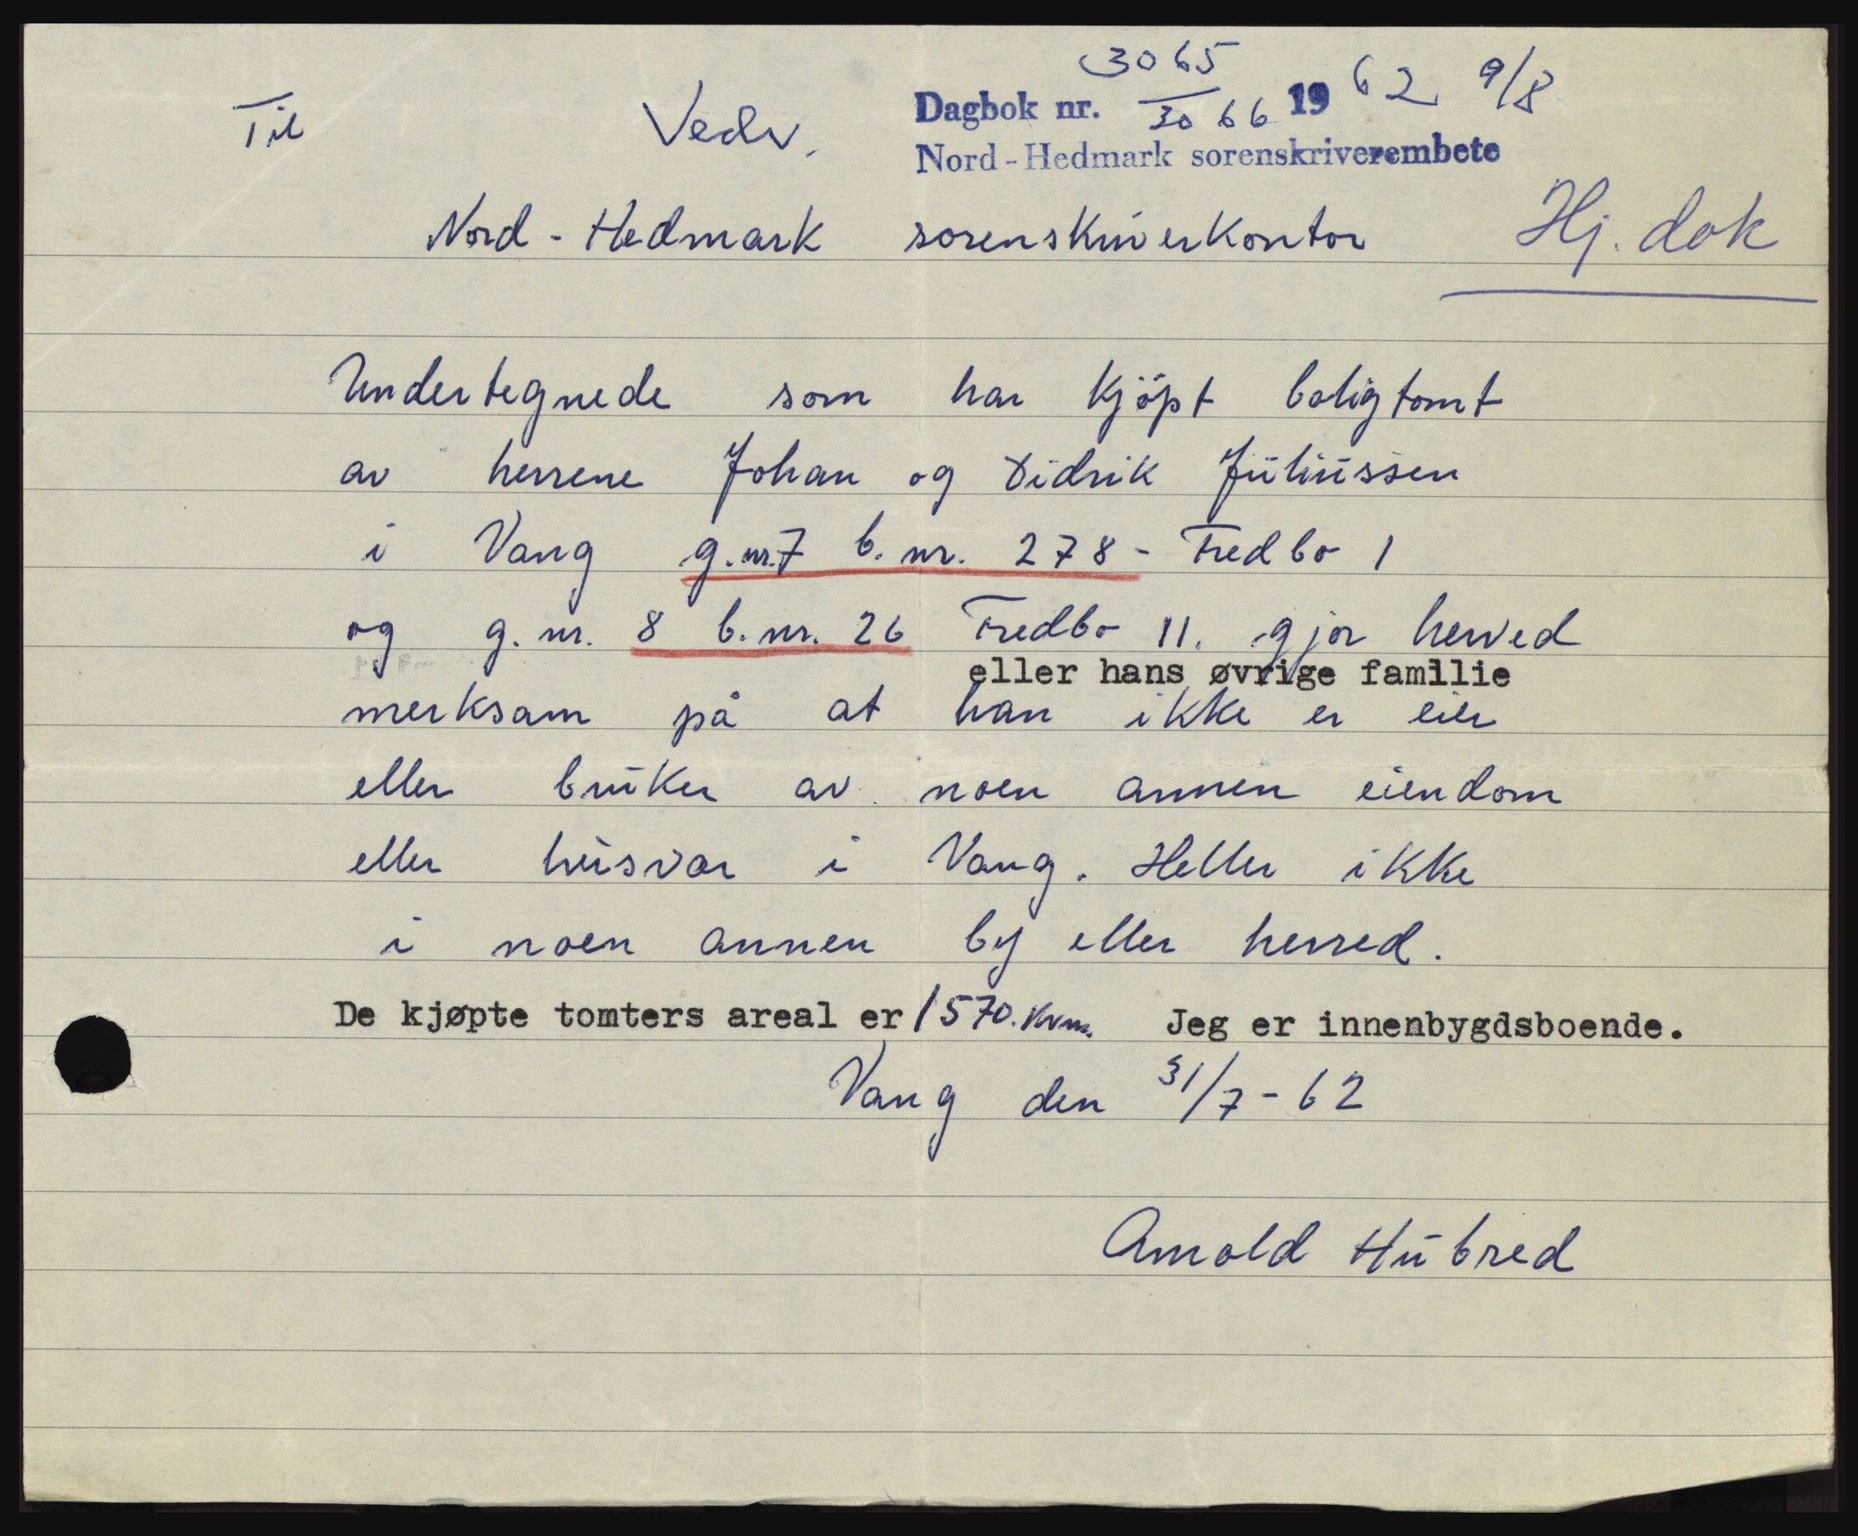 3065
Til Vedv. Dagbok nr. 3066 1962 9/8
Nord-Hedmark sorenskriverembete
Nord-Hedmark sorenskriverkontor Hj. dok
Undertegnede som har kjöpt boligtomt
av herrene Johan og Didrik Juliussen
i Vang g.nr.7 b.nr. 278 - Fredbo 1
og g.nr. 8 b.nr. 26 Fredbo 11. gjør herved
eller hans øvrige familie
merksam på at han ikke er eier
eller bruker av noen annen eiendom
eller husvær i Vang. Heller ikke
i noen annen by eller herred.
De kjøpte tomters areal er 1570. kvm. Jeg er innenbygdsboende.
Vang den 31/7-62
Arnold Hubred